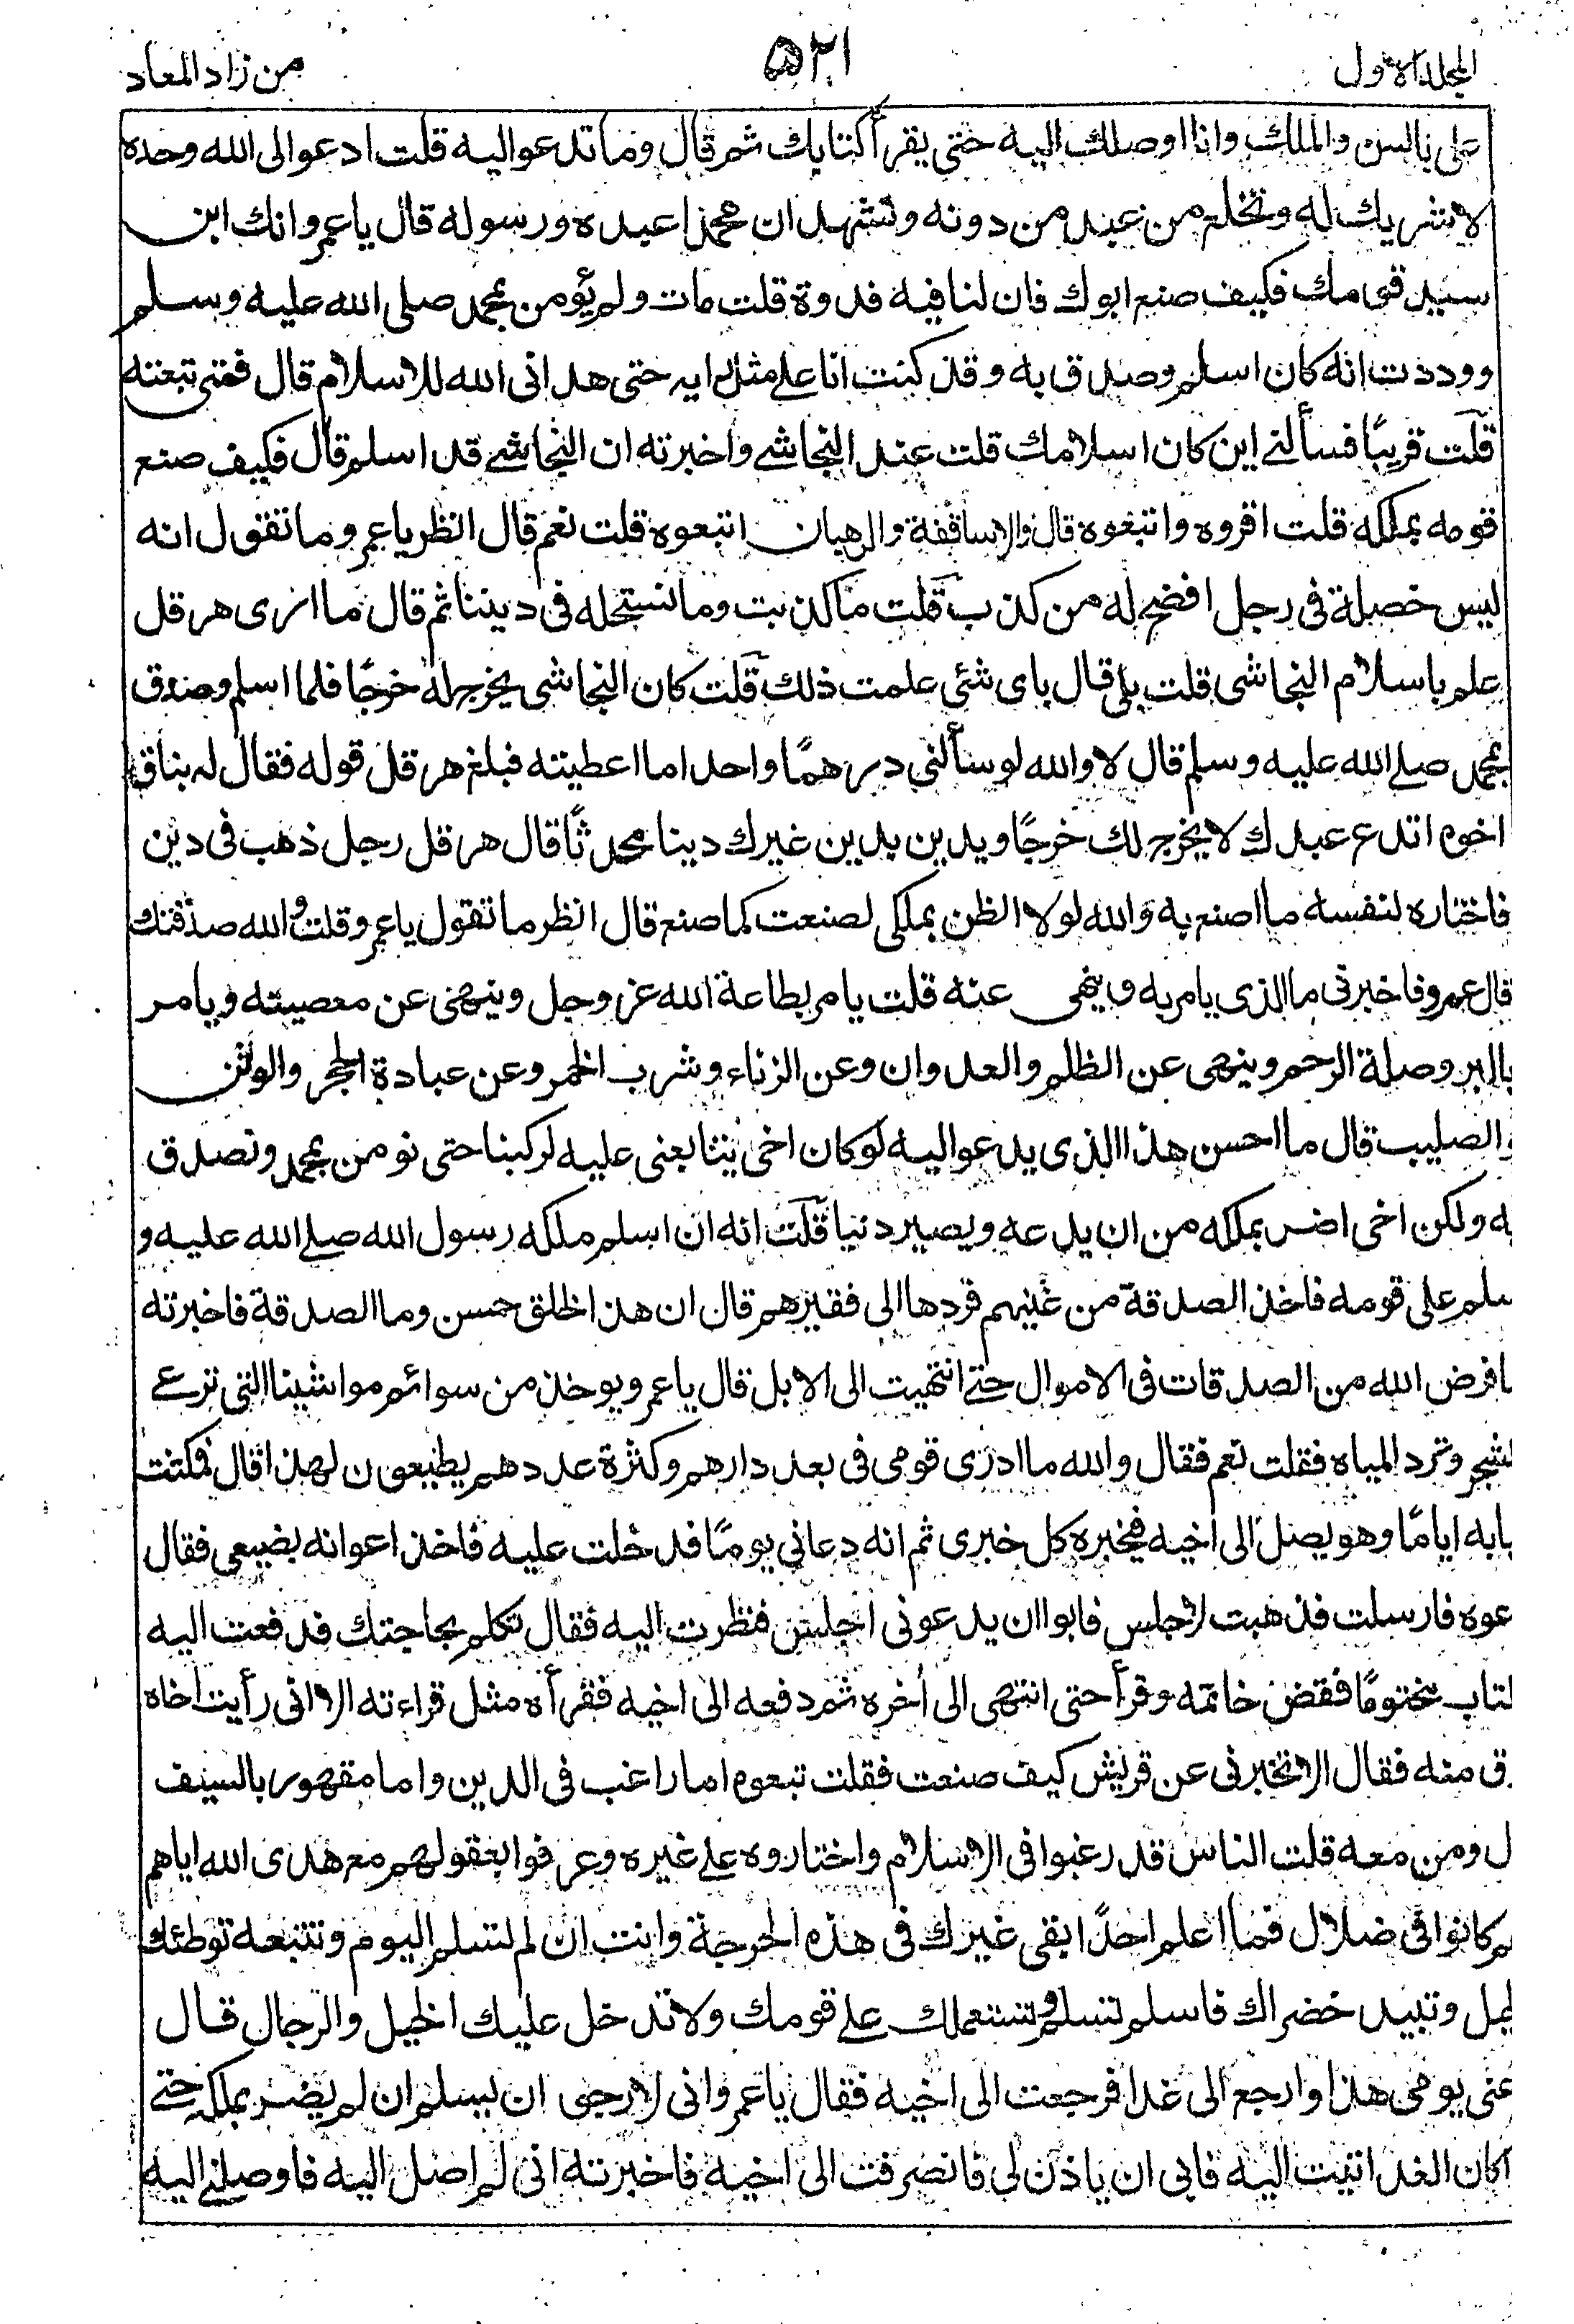 المجلد الاول
۵۲۱
من زاد المعاد
على بالسن والملك وانا اوصلك اليه حتى يقرأ كتابك ثم قال وما تدعو اليه قلت ادعوا الى الله وحده
لا شريك له وتخلع من عبد من دونه وتشهد ان محمدا عبده ورسوله قال يا عمرو انك ابن
سيد قومك فكيف صنع ابوك فان لنا فيه قدوة قلت مات ولم يؤمن بمحمد صلى الله عليه وسلم
ووددت انه كان اسلم وصدق به وقد كنت انا على مثل رايه حتى هدانى الله للاسلام قال فمتى تبعته
قلت قريبًا فسألنے اين كان اسلامك قلت عند النجاشے واخبرته ان النجاشے قد اسلم قال فكيف صنع
قومه بملكه قلت اقروه واتبعوه قال والاساقفة والرهبان اتبعوه قلت نعم قال انظر يا عمرو ما تقول انه
ليس خصلة فى رجل افضح له من كذب قلت ما كذبت وما نستحله فى ديننا ثم قال ما ارى هرقل
علم باسلام النجاشى قلت بلى قال باى شئى علمت ذلك قلت كان النجاشى يخرج له خرجًا فلما اسلم وصدق
بمحمد صلے الله عليه وسلم قال لا والله لو سألنى درهمًا واحدا ما اعطيته فبلغ هرقل قوله فقال له يناق
اخوه اتدع عبدك لا يخرج لك خرجًا ويدين بدين غيرك دينا محدثًا قال هرقل رجل ذهب فى دين
فاختاره لنفسه ما اصنع به والله لولا الظن بملكى لصنعت كما صنع قال انظر ما تقول يا عمرو قلت والله صدقتك
قال عمرو فاخبرنى ما الذى يامر به وينهى عنه قلت يامر بطاعة الله عز وجل وينهى عن معصيته ويامر
بالبر وصلة الرحم وينهى عن الظلم والعدوان وعن الزناء وشرب الخمر وعن عبادة الحجر والوثن
والصليب قال ما احسن هذا الذى يدعو اليه لو كان اخى يتابعنى عليه لركبنا حتى نومن بمحمد ونصدق
به ولكن اخى اضن بملكه من ان يدعه ويصير دنيا قلت انه ان اسلم ملكه رسول الله صلے الله عليه و
سلم على قومه فاخذ الصدقة من غنيهم فردها الى فقيرهم قال ان هذا الخلق حسن وما الصدقة فاخبرته
ما فرض الله من الصدقات فى الاموال حتے انتهيت الى الابل قال يا عمرو يوخذ من سوائم مواشينا التى ترعے
لشجر وترد المياه فقلت نعم فقال والله ما ادرى قومى فى بعد دارهم وكثرة عددهم يطيعون لهذا قال فمكثت
بابه ايامًا وهو يصل الى اخيه فيخبره كل خبرى ثم انه دعانى يومًا فدخلت عليه فاخذ اعوانه بضبعى فقال
عوه فارسلت فذهبت لاجلس فابوا ان يدعونى اجلس فنظرت اليه فقال تكلم بحاجتك فدفعت اليه
لتاب مختومًا ففض خاتمه وقرأ حتى انتهى الى اخره ثم دفعه الى اخيه فقرأه مثل قراءته الا انى رأيت اخاه
رق منه فقال الا تخبرنى عن قريش كيف صنعت فقلت تبعوه اما راغب فى الدين واما مقهور بالسيف
ل ومن معه قلت الناس قد رغبوا فى الاسلام واختاروه على غيره وعرفوا بعقولهم مع هدى الله اياهم
هم كانوا فى ضلال فما اعلم احدًا بقى غيرك فى هذه الحرجة وانت ان لم تسلم اليوم وتتبعه توطئك
لخيل وتبيد خضراك فاسلم تسلم ويستعملك على قومك ولا تدخل عليك الخيل والرجال قال
عنى يومى هذا وارجع الى غدا فرجعت الى اخيه فقال يا عمرو انى لارجو ان يسلم ان لم يضن بملكه حتے
اكان الغد اتيت اليه فابى ان ياذن لى فانصرفت الى اخيه فاخبرته انى لم اصل اليه فاوصلنے اليه